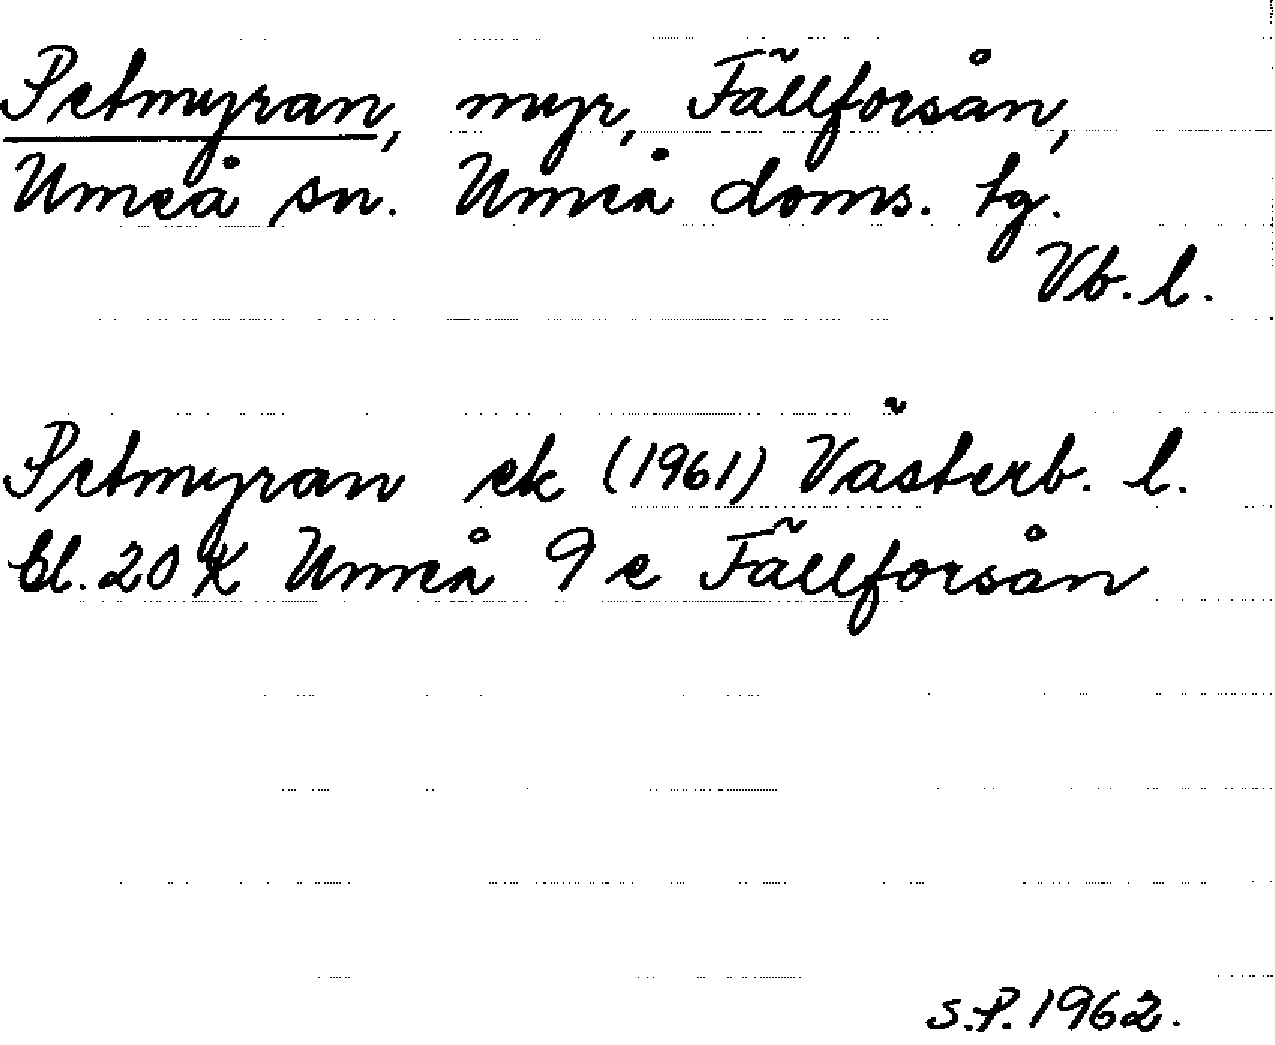 Petmyran, myr, Fällforsån,
Umeå sn. Umeå doms. tg.
Vb. l.
Petmyran ek (1961) Västerb. l.
bl. 20 K Umeå 9 e Fällforsån
S.P. 1962.